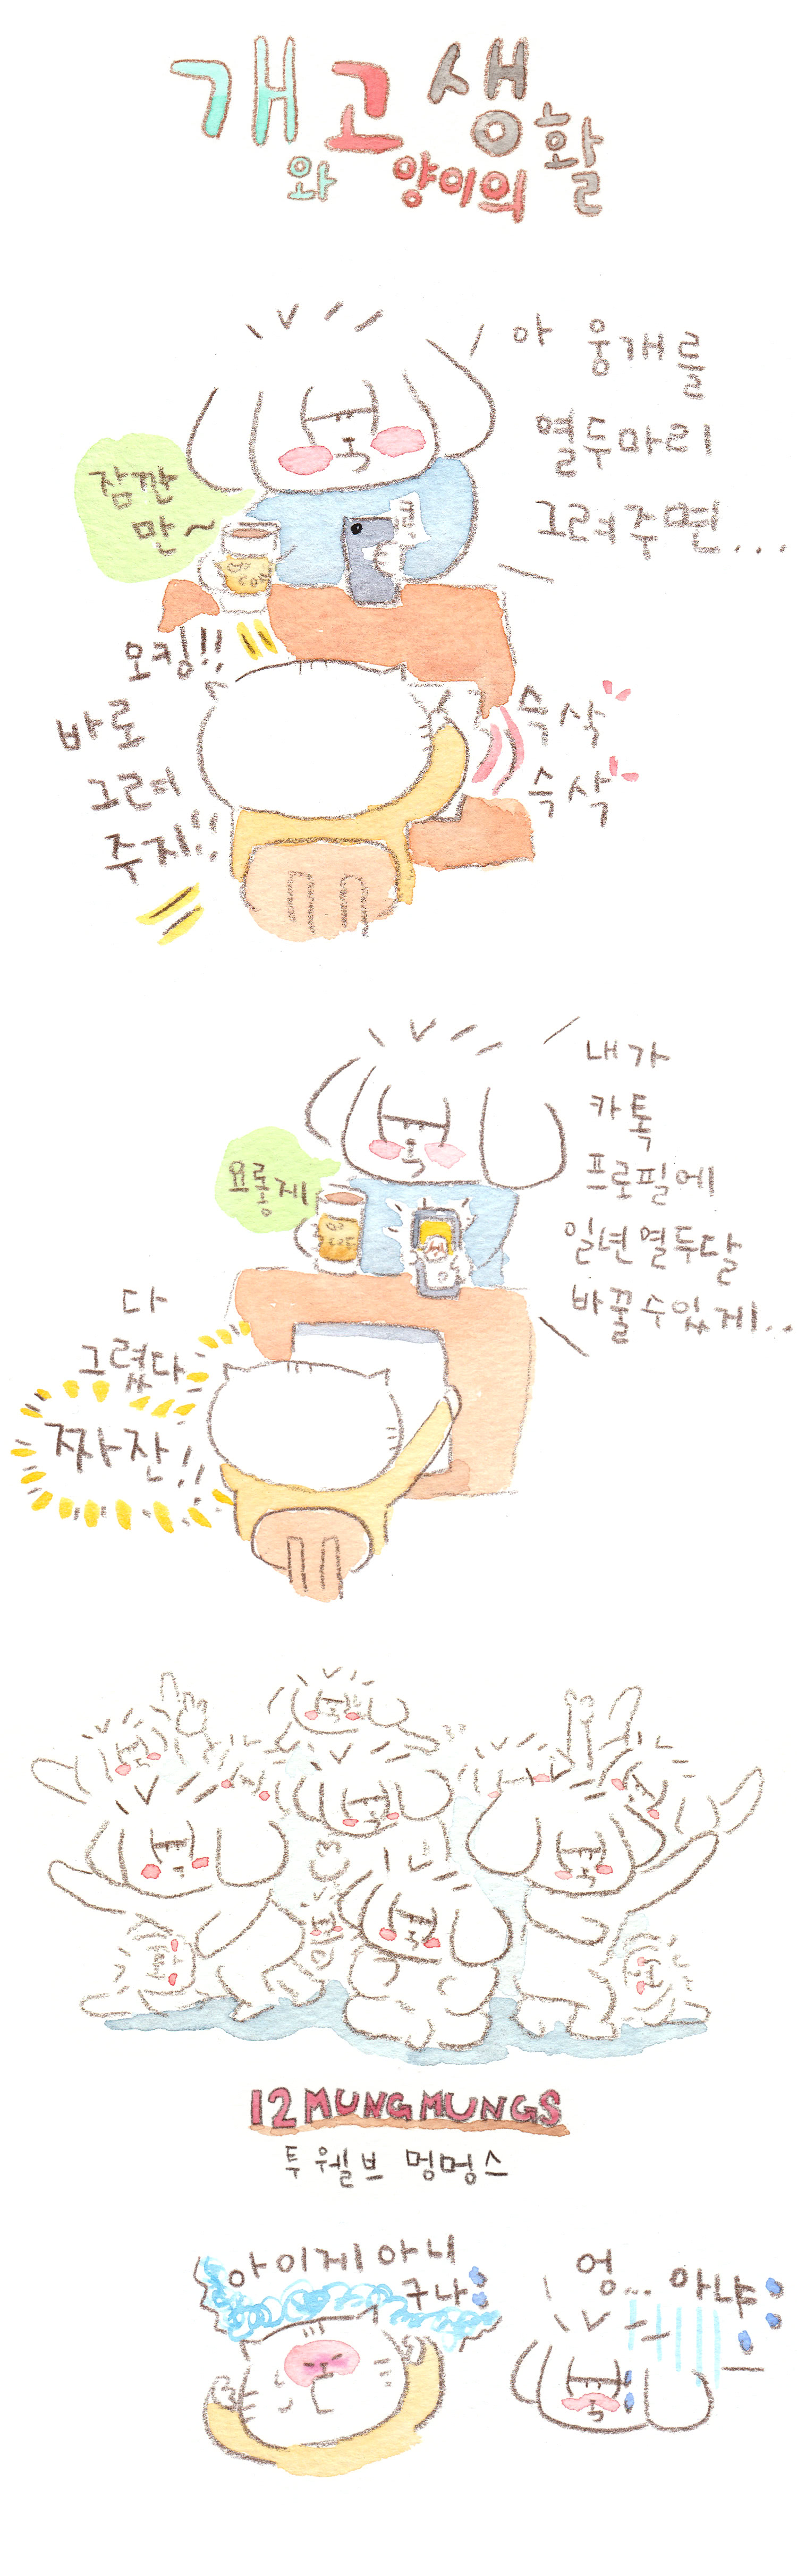 개와 고양이의 생활
아 웅개를
열두마리
그려주면...
잠깐
만~
오킹!!
바로
그려
주지!!
슥삭
슥삭
내가
카톡
프로필에
일년열두달
바꿀수있게..
요롱게
다
그렸다
짜잔!!
12 MUNGMUNGS
투웰브 멍멍스
아이게아니
구나
엉... 아냐